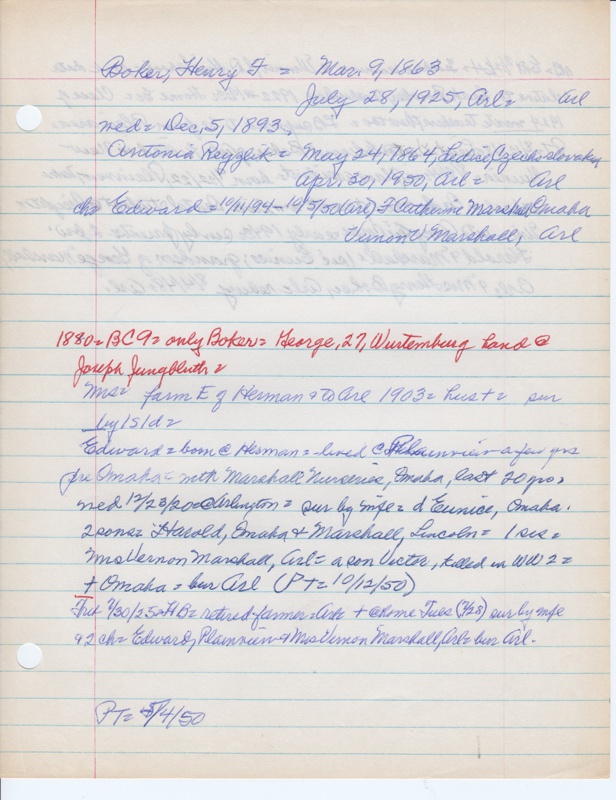 Boker, Henry F = Mar. 9, 1863
July 28, 1925, Arl = Arl
wed = Dec, 5, 1893,
Antonia Reyzlik = May 24, 1864, Ledice, Czechoslovakia,
Apr, 30, 1950, Arl = Arl
ch = Edward = 10/11/94 - 10/5/50 (Arl) F Catherine Marshall, Omaha
Vernon V Marshall, Arl
1880 = BC 9 = only Boker = George, 27, Wurtemburg hand @
Joseph Jungbluth =
Mrs = farm E of Herman & to Arl 1903 = hus + = sur
by 1 S 1 d =
Edward = born @ Herman = lived @ Plainview a few yrs
pre Omaha = with Marshall Nurseries, Omaha, last 20 yrs,
wed 12/23/20 @ Arlington = sur by wife = d Eunice, Omaha.
2 sons = Harold, Omaha & Marshall, Lincoln = 1 sis =
Mrs Vernon Marshall, Arl = a son Victor, killed in WW 2 =
+ Omaha = bur Arl (PT = 10/12/50)
7/30/25 = HB = retired farmer = Arl + @ home Tues (7/28) sur by wife
& 2 ch = Edward, Plainview & Mrs Vernon Marshall, Arl = bur Arl.
PT = 5/4/50